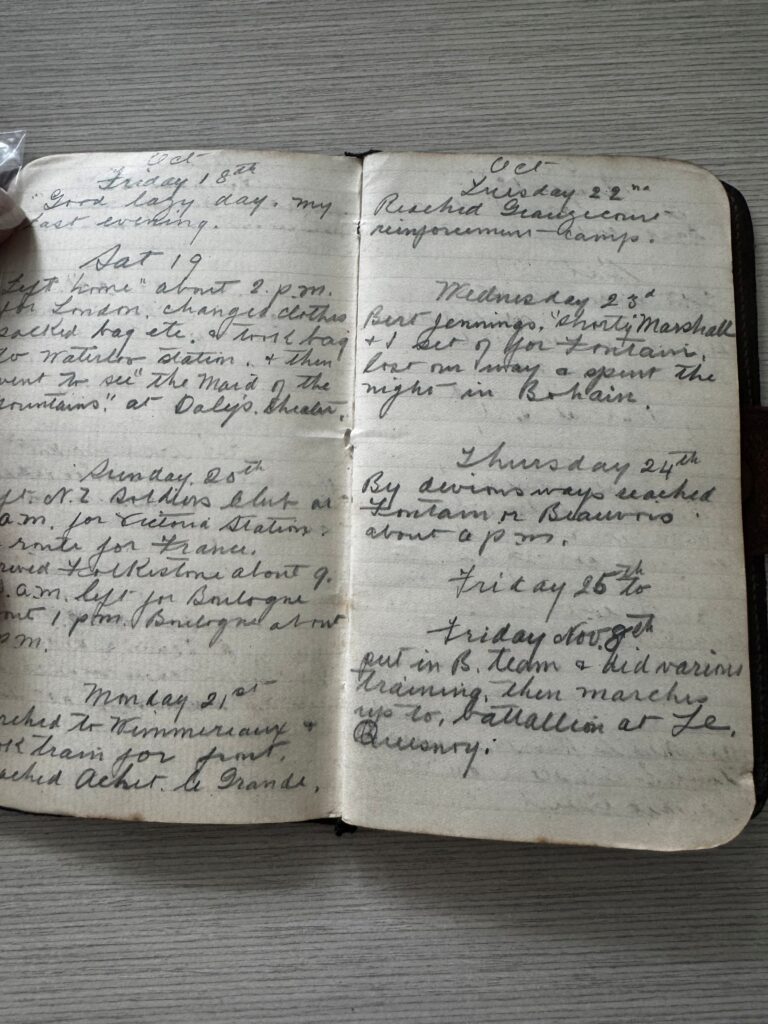 Oct
Friday 18th
"Good lazy day. my
last evening.
Sat 19
Left home" about 2 p.m.
for London, changed clothes
packed bag etc. & took bag
to Waterloo station, & then
went to see "the Maid of the
Mountains." at Daly's. theater.
Sunday. 20th
N.Z Soldiers Club at
a.m. for Victoria Station.
route for France.
Folkestone about 9.
a.m. left for Boulogne
1. p.m. Boulogne about
p.m.
Monday 21st
to Wimmereaux &
train for front.
Achet. le Grande.
Oct
Tuesday 22nd
Reached
reinforcement camp.
Wednesday 23d
Bert Jennings, "Shorty" Marshall
& I set of for Fontain,
lost our way & spent the
night in Bohain.
Thursday 24th
By devious ways reached
Fontain or Beauvois
about 6 p m.
Friday 25th to
Friday Nov. 8th
put in B. team & did various
training, then marches
up to, battallion at Le,
Quesnoy.